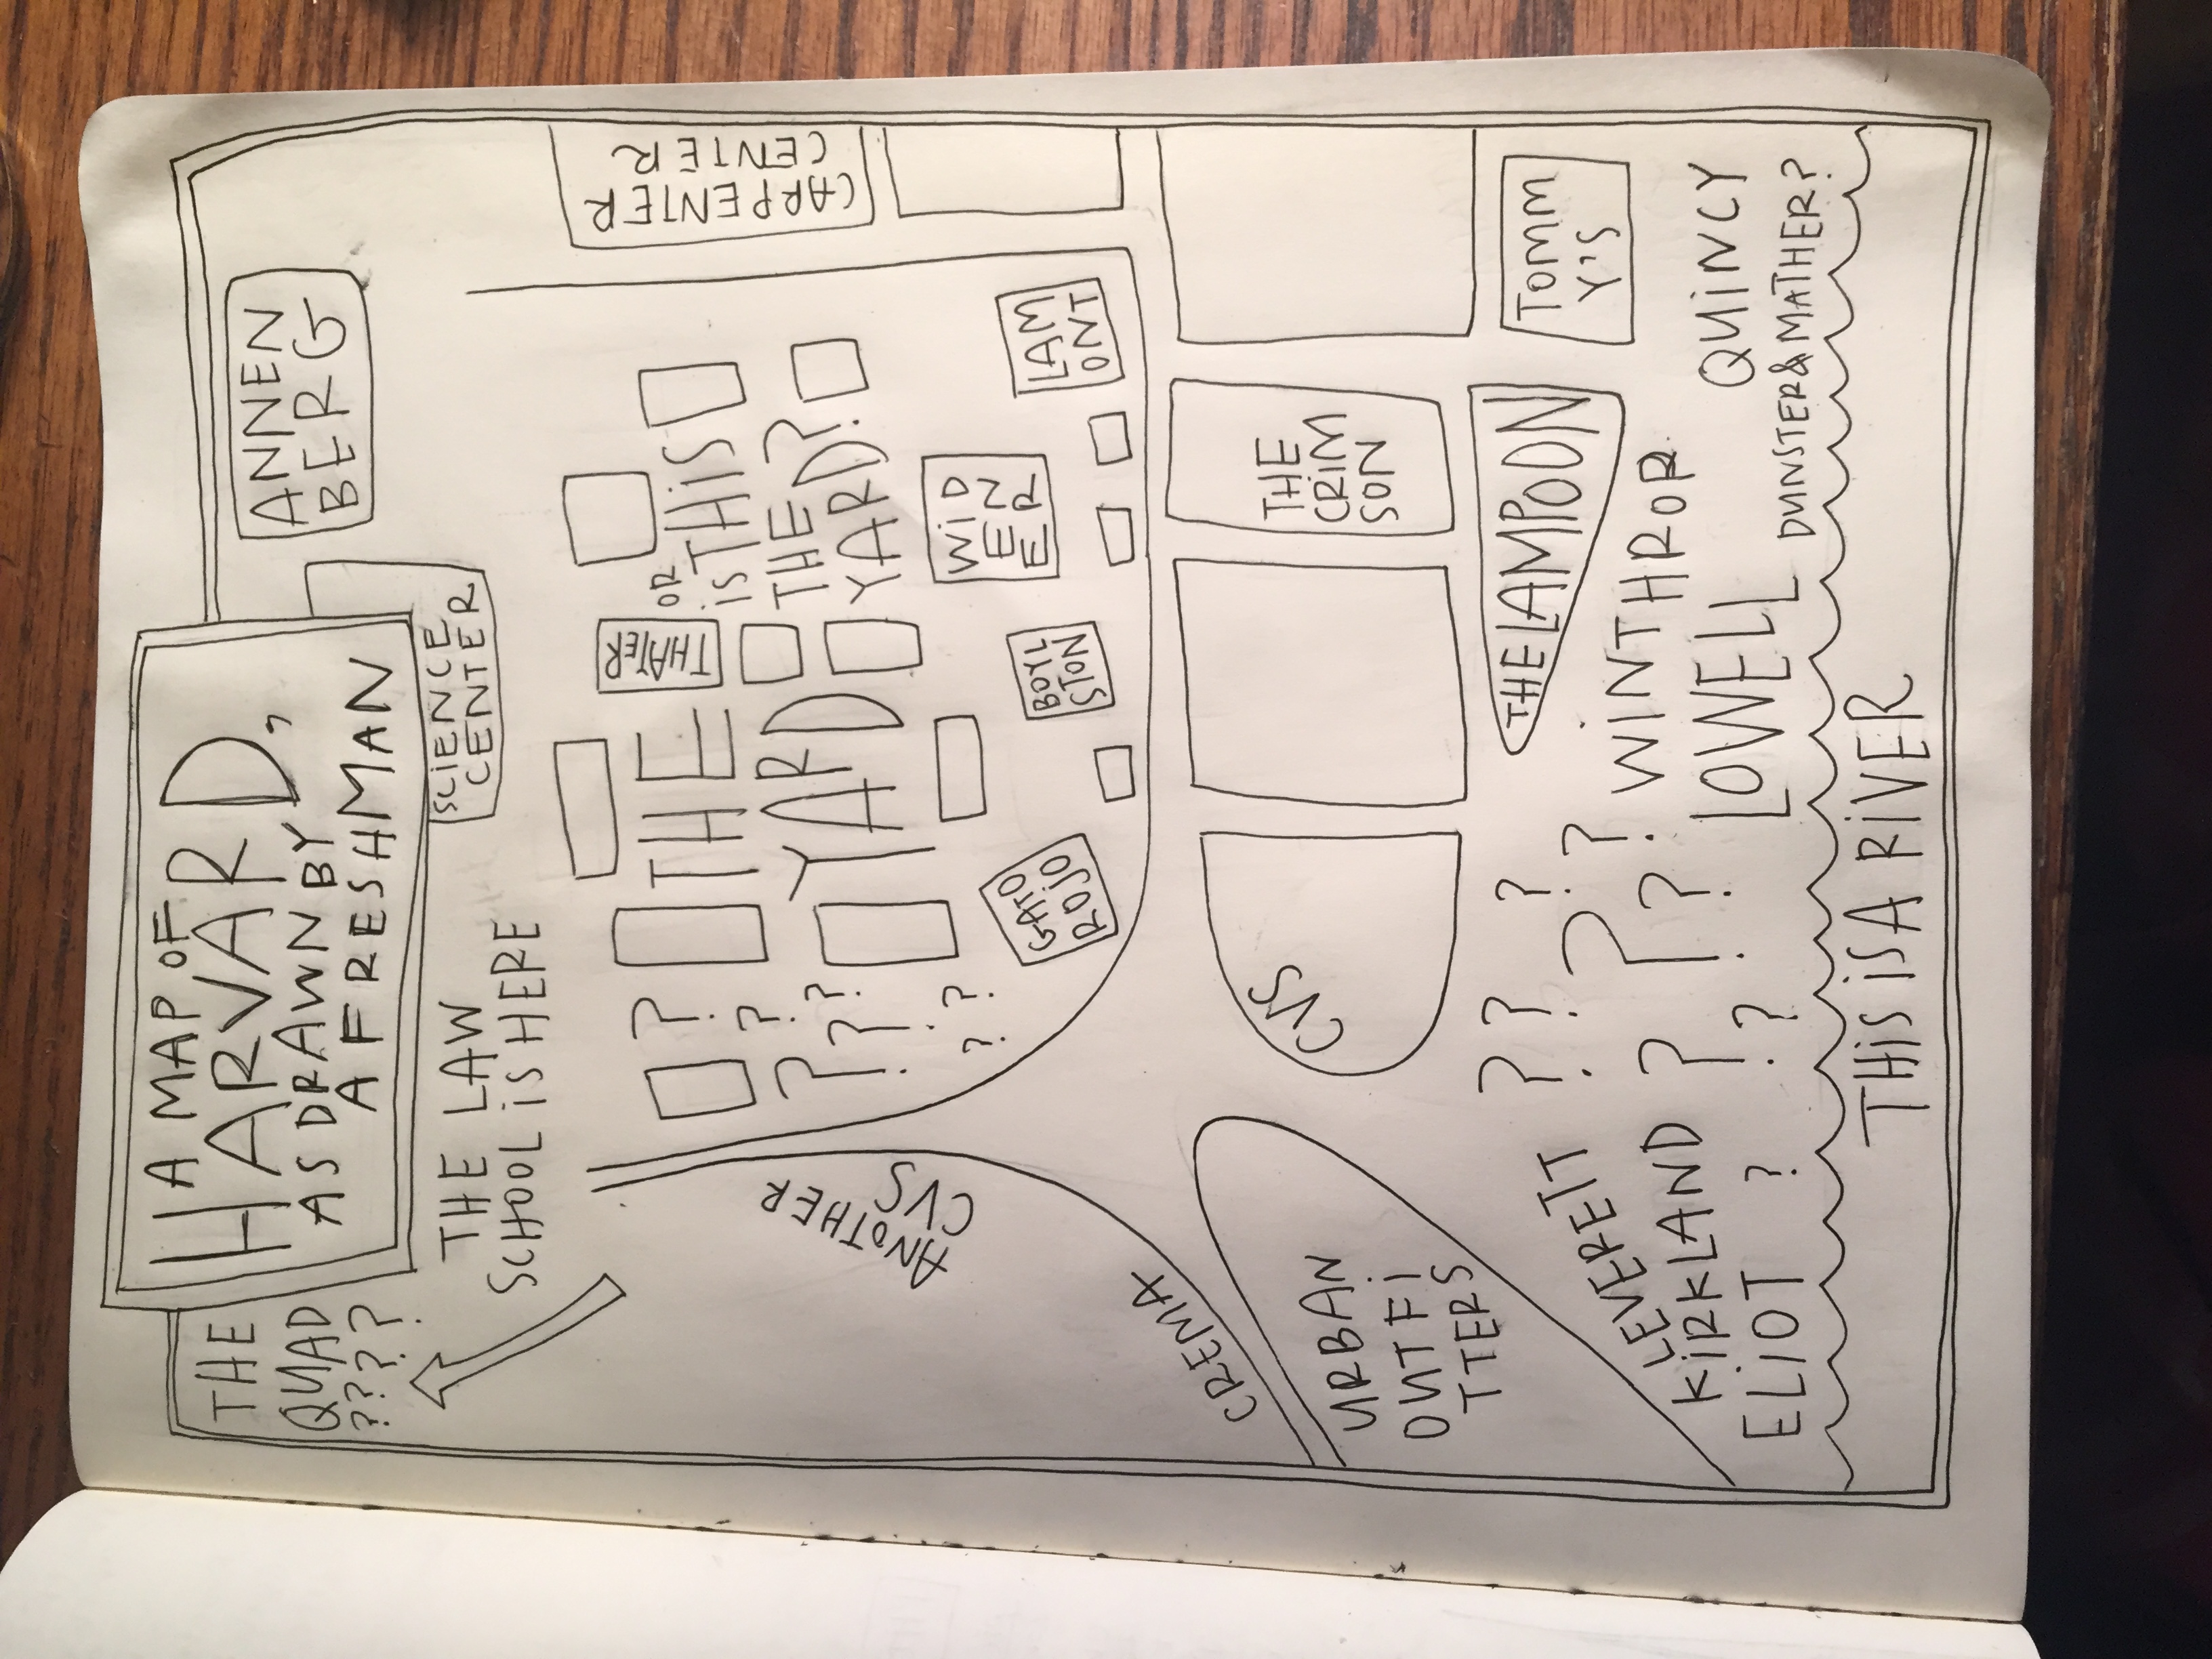 A MAP OF
HARVARD,
AS DRAWN BY
A FRESHMAN
THE
QUAD
????
THE LAW
SCHOOL iS HERE
SCIENCE
CENTER
ANNEN
BERG
CARPENTER
CENTER
THE
YARD
THAYER
OR
iS THiS
THE
YARD?
?
?
?
?
?
?
?
GATO
ROJO
BOYL
STON
WiD
EN
ER
LAM
ONT
ANOTHER
CVS
CREMA
URBAN
OUTFi
TTERS
CVS
THE
CRiM
SON
THE LAMPOON
TOMM
Y'S
? ? ? ?
? ? ?
? ?
?
LEVERETT
KiRKLAND
ELiOT
WiNTHROP
LOWELL
QUiNCY
DUNSTER & MATHER?
THiS iS A RiVER